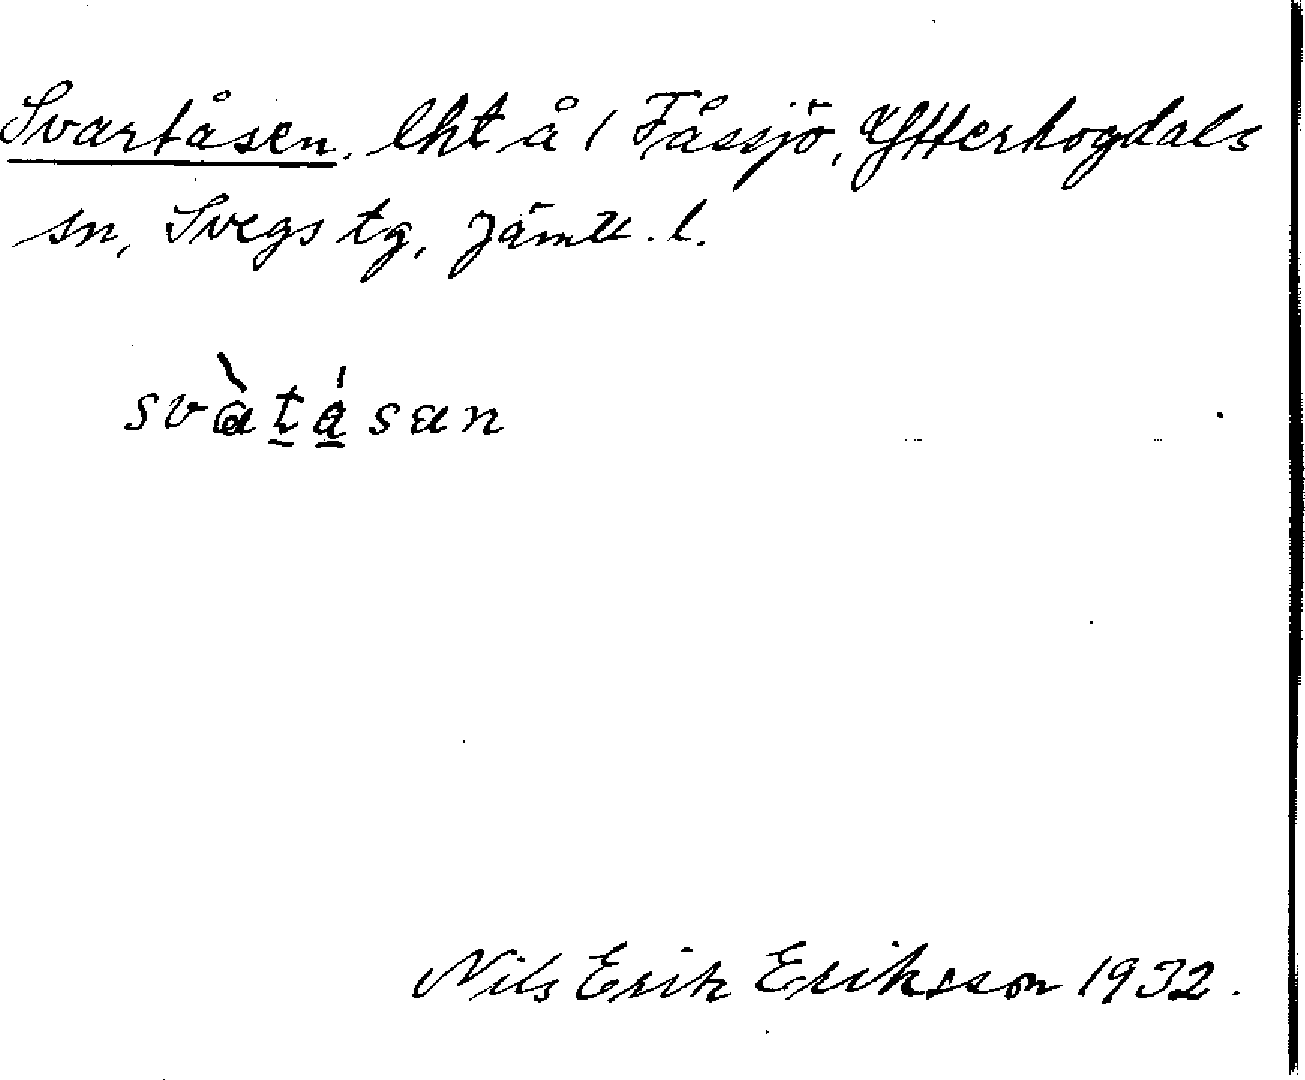 Svartåsen, lht å 1 Fåssjö, Ytterhogdals
sn, Svegs tg, Jämtl. l.
svàtásan
Nils Erik Eriksson 1932.